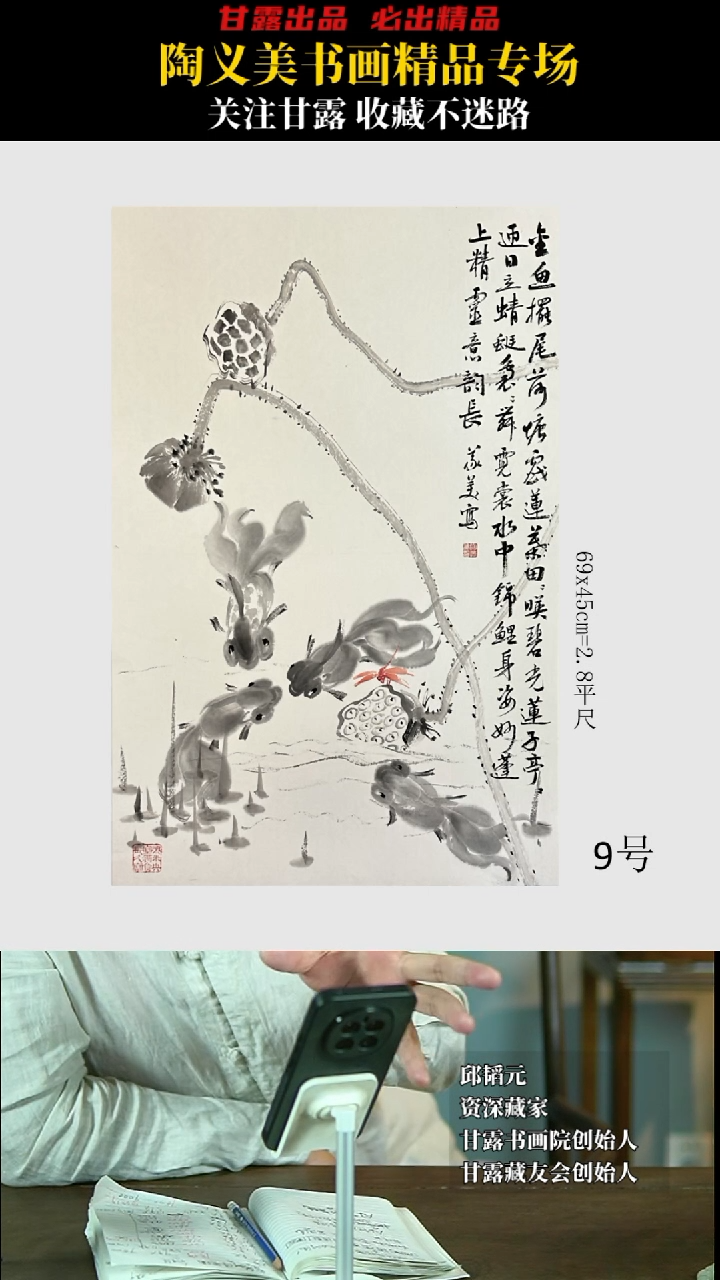 甘露出品 必出精品
陶义美书画精品专场
关注甘露 收藏不迷路
金鱼摆尾荷塘戏蓮葉田田映碧光蓮子亭亭
迎日立蜻蜓裊裊舞霓裳水中錦鯉身姿妙蓬
上精靈意韵長 义美寫
69x45cm=2.8平尺
9号
邱韬元
资深藏家
甘露书画院创始人
甘露藏友会创始人